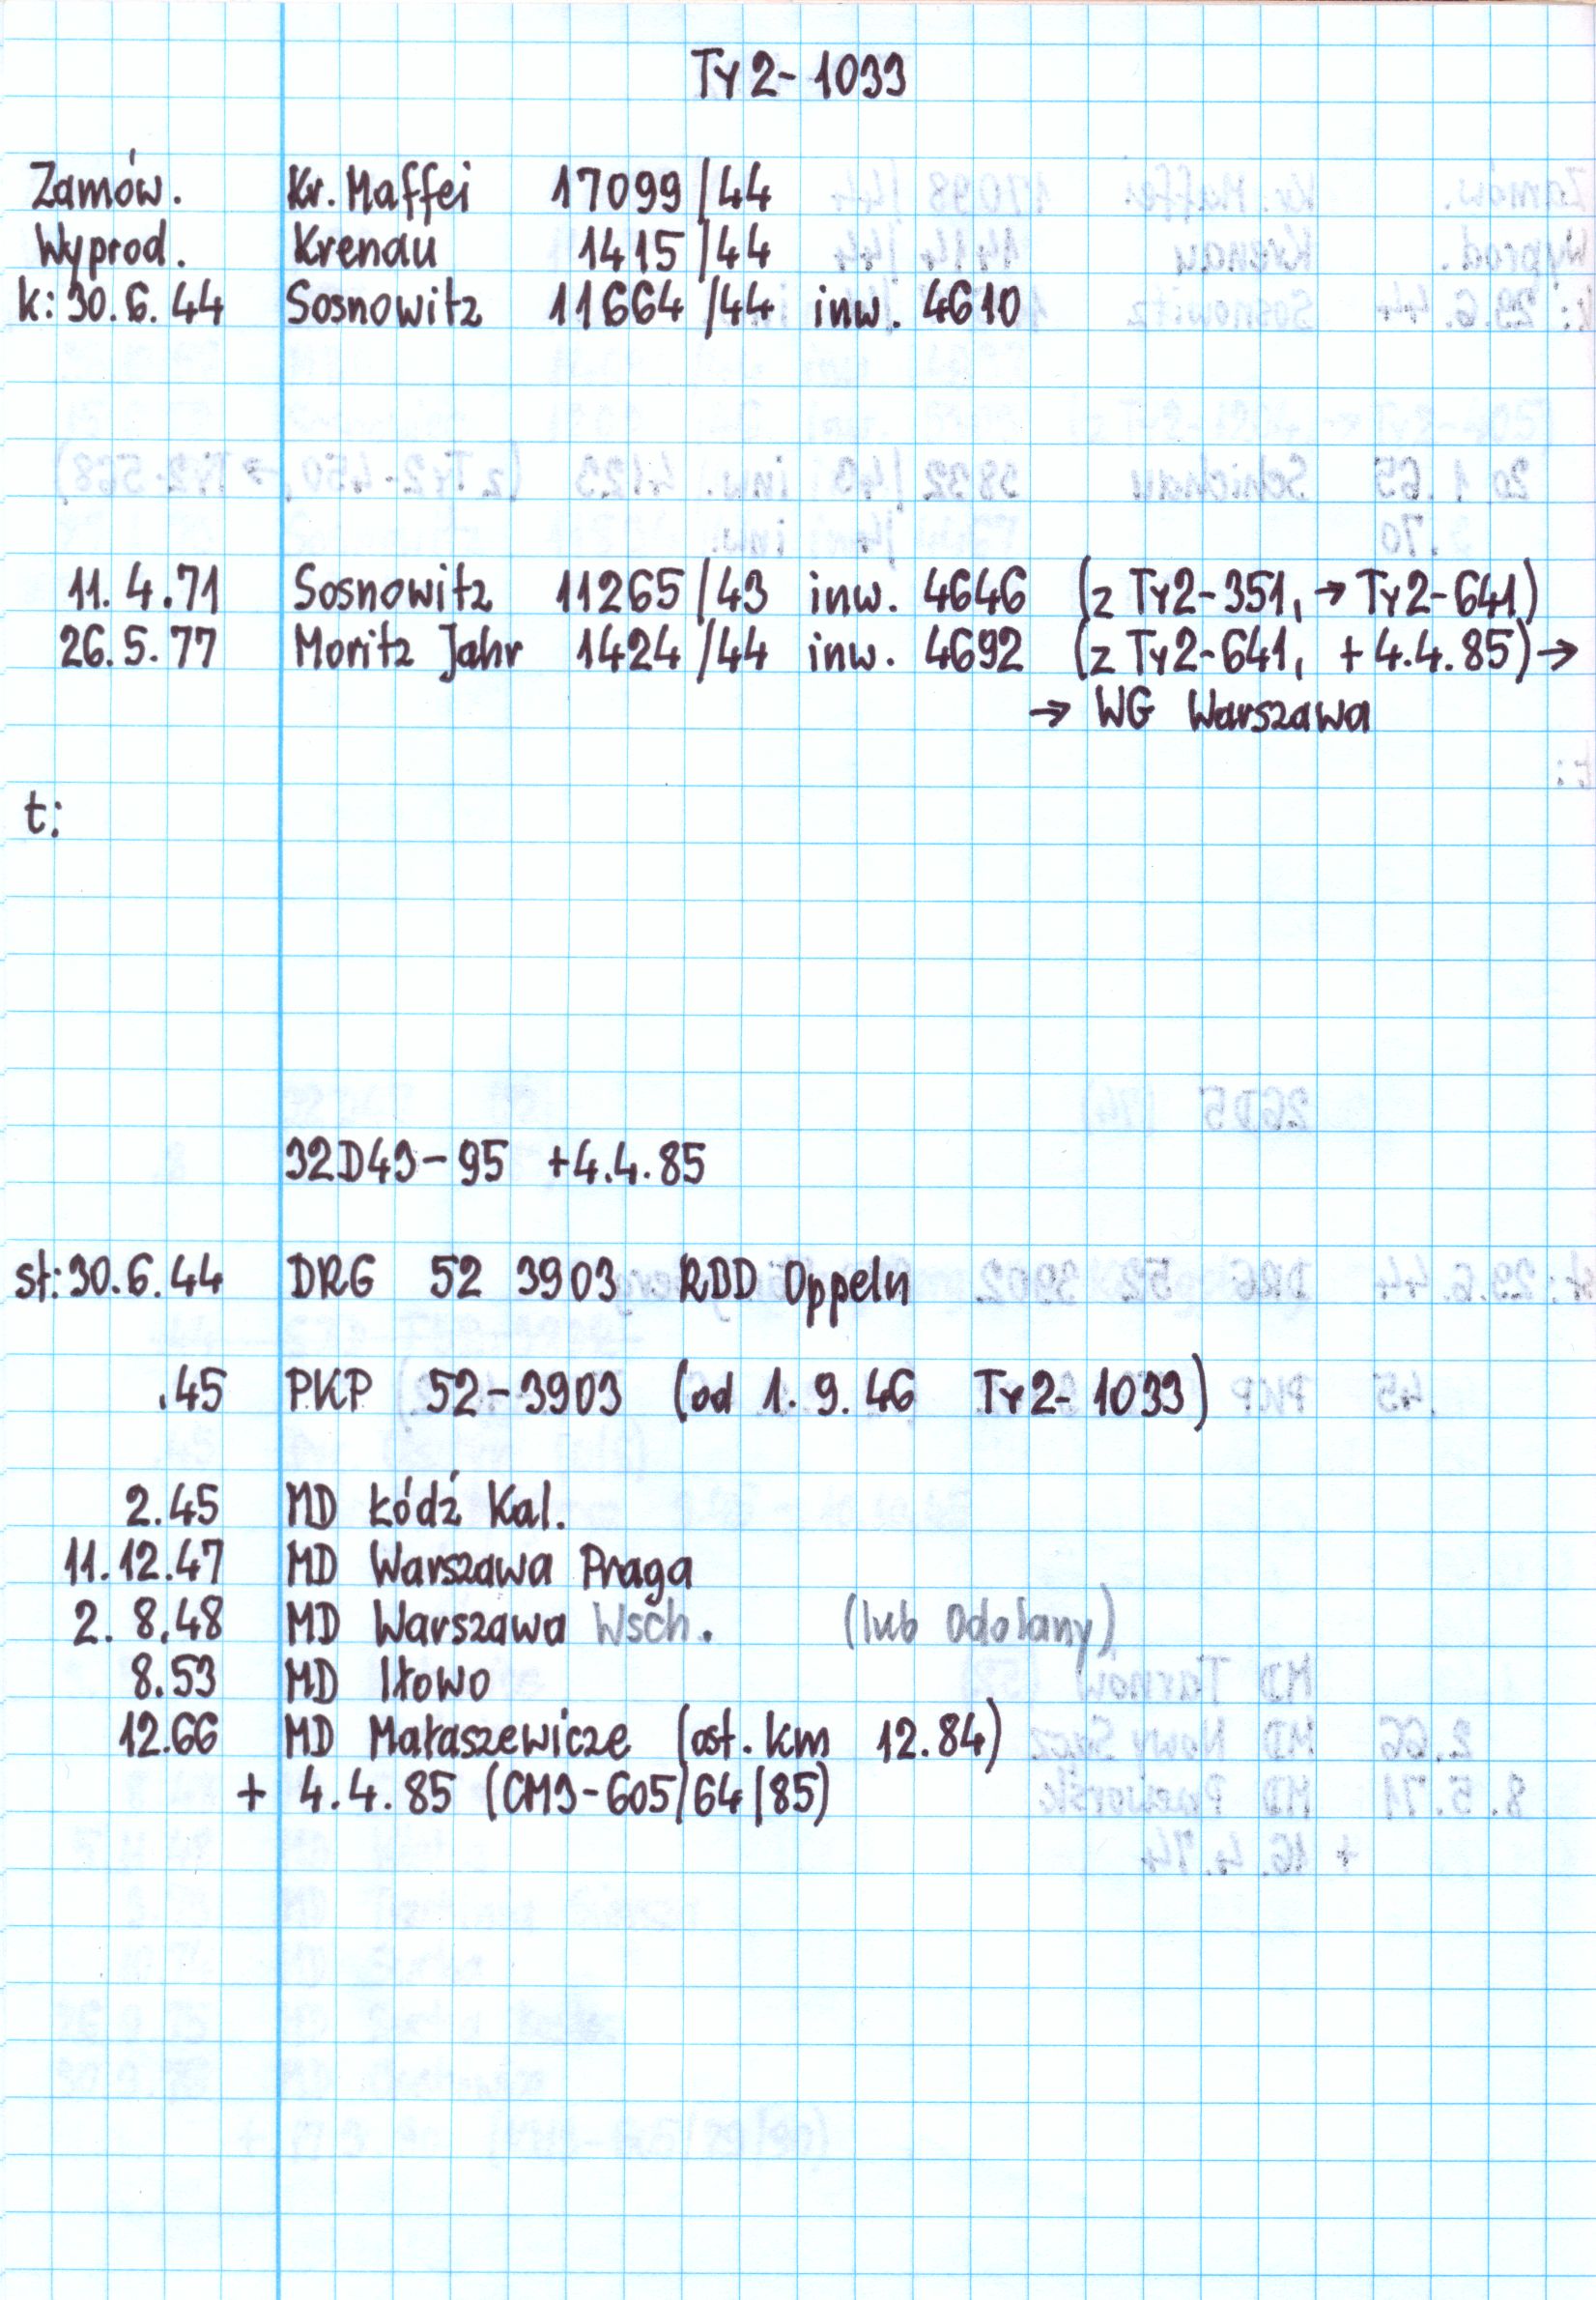 Ty2-1033
Zamów. Kr. Maffei 17099/44
Wyprod. Krenau 1415/44
k: 30.6.44 Sosnowitz 11664/44 inw. 4610
11.4.71 Sosnowitz 11265/43 inw. 4646 (z Ty2-351, → Ty2-641)
26.5.77 Moritz Jahr 1424/44 inw. 4692 (z Ty2-641, +4.4.85) →
→ WG Warszawa
t:
32D43-95 +4.4.85
st: 30.6.44 DRG 52 3903 RBD Oppeln
.45 PKP 52-3903 (od 1.9.46 Ty2-1033)
2.45 MD Łódź Kal.
11.12.47 MD Warszawa Praga
2.8.48 MD Warszawa Wsch. (lub Odolany)
8.53 MD Iłowo
12.66 MD Małaszewicze (ost. km 12.84)
+ 4.4.85 (CM3-605/64/85)